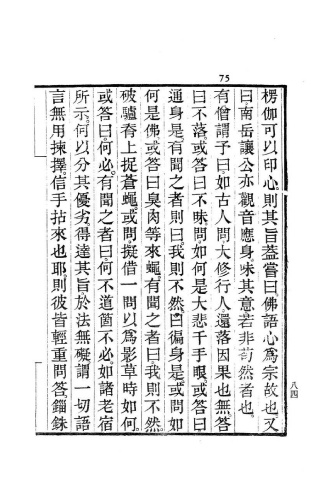 75
楞伽可以印心則其旨蓋嘗曰佛語心爲宗故也又
曰南岳讓公亦觀音應身味其意若非苟然者也。
有僧謂予曰如古人問大修行人還落因果也無答
曰不落。或答曰不昧問如何是大悲千手眼。或答曰
通身是。有聞之者則曰我則不然。曰徧身是。或問如
何是佛或答曰臭肉等來蠅。有聞之者曰我則不然。
破驢脊上捉蒼蠅。或問擬借一問以爲影草時如何。
或答曰何必。有聞之者曰何不道箇不必如諸老宿
所示。何以分其優劣得達其旨於法無礙謂一切語
言無用揀擇。信手拈來也耶。則彼皆輕重問答錙銖
八四